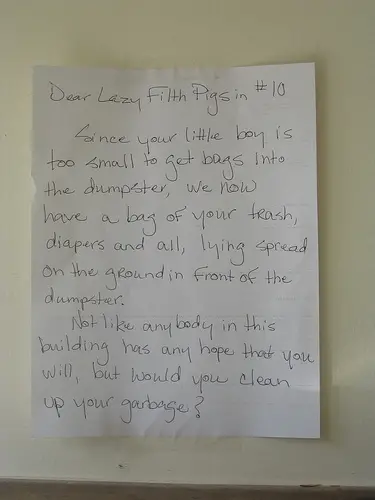 Dear Lazy Filth Pigs in #10
Since your little boy is
too small to get bags into
the dumpster, we now
have a bag of your trash,
diapers and all, lying spread
on the ground in front of the
dumpster.
Not like anybody in this
building has any hope that you
will, but would you clean
up your garbage?